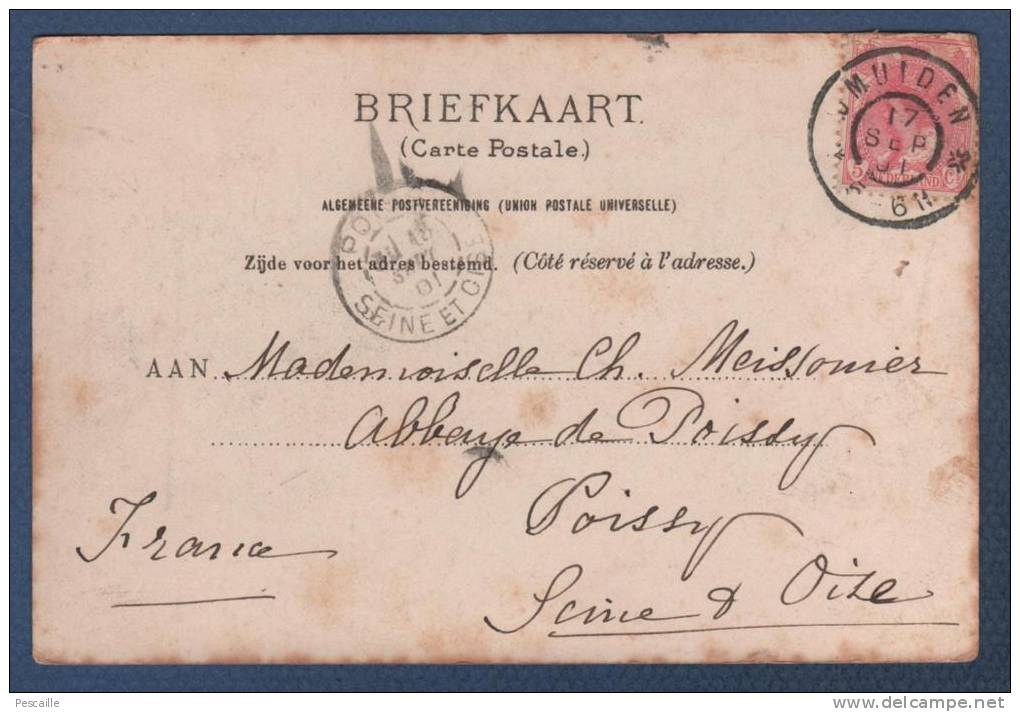 BRIEFKAART.
(Carte Postale.)
ALGEMEENE POSTVEREENIGING (UNION POSTALE UNIVERSELLE)
Zijde voor het adres bestemd. (Côté réservé à l'adresse.)
MUIDEN
17
SEP
01
5
SEINE ET OISE
01
AAN Mademoiselle Ch. Meissonier
Abbaye de Poissy
Poissy
France
Seine & Oise
Pescaille
www.delcampe.net